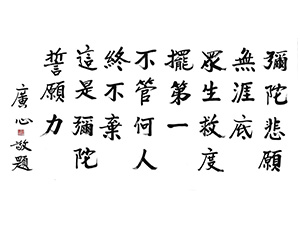 彌陀悲願
無涯底
眾生救度
擺第一
不管何人
終不棄
這是彌陀
誓願力
廣心敬題